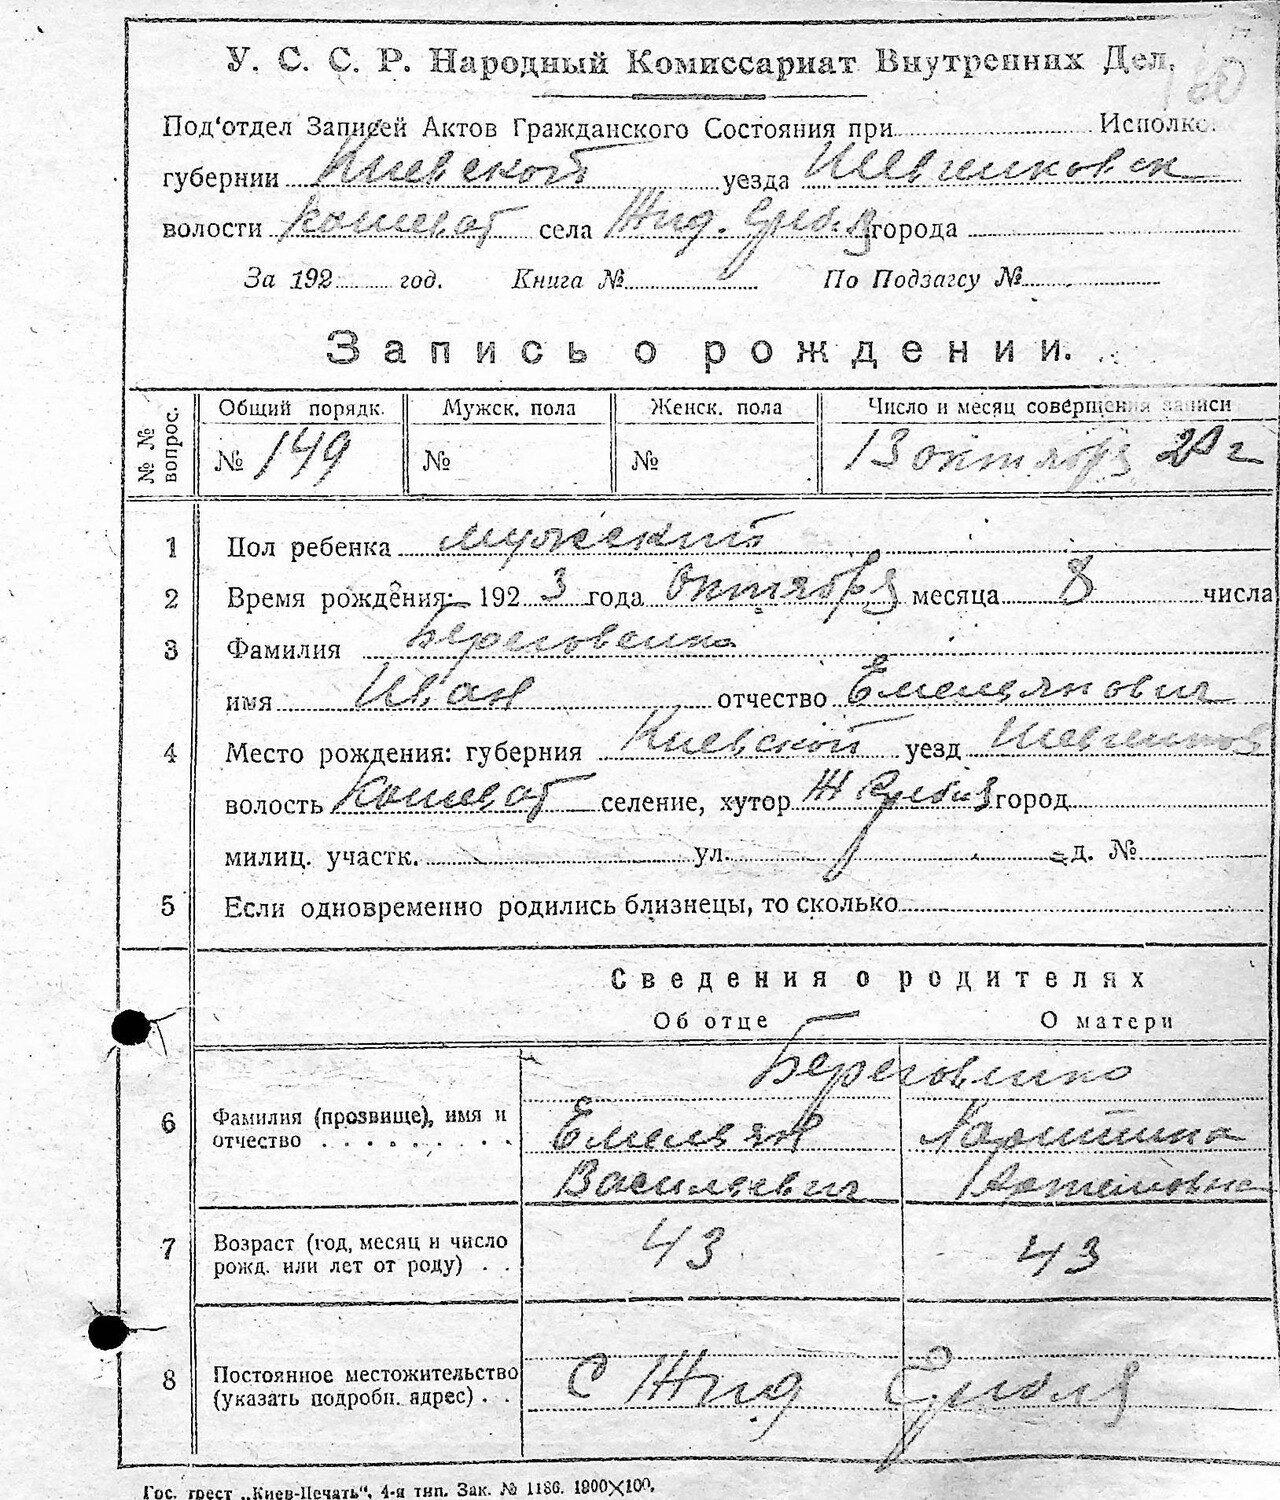 У. С. С. Р. Народный Комиссариат Внутренних Дел.
Под'отдел Записей Актов Гражданского Состояния при Исполко
губернии Киевской уезда Шевченковск
волости Кошеват села Жид. Гребля города
За 192 год. Книга № По Подзагсу №
Запись о рождении.
№ № вопрос. Общий порядк. Мужск. пола Женск. пола Число и месяц совершения записи
№ 149 № № 13 октября г
1 Пол ребенка мужский
2 Время рождения: 192 3 года Октября месяца 8 числа
3 Фамилия Береговенко
имя Иван отчество Емельянович
4 Место рождения: губерния Киевской уезд Шевченков
волость Кошеват селение, хутор Ж Гребля город
милиц. участк. ул. д. №
5 Если одновременно родились близнецы, то сколько
Сведения о родителях
Об отце О матери
Береговенко
6 Фамилия (прозвище), имя и Емельян Харитина
отчество Васильевич Артемовна
7 Возраст (год, месяц и число 43 43
рожд. или лет от роду) . .
8 Постоянное местожительство С Жид Гребля
(указать подробн. адрес) . .
Гос. трест „Киев-Печать“, 4-я тип. Зак. № 1186. 1800×100.